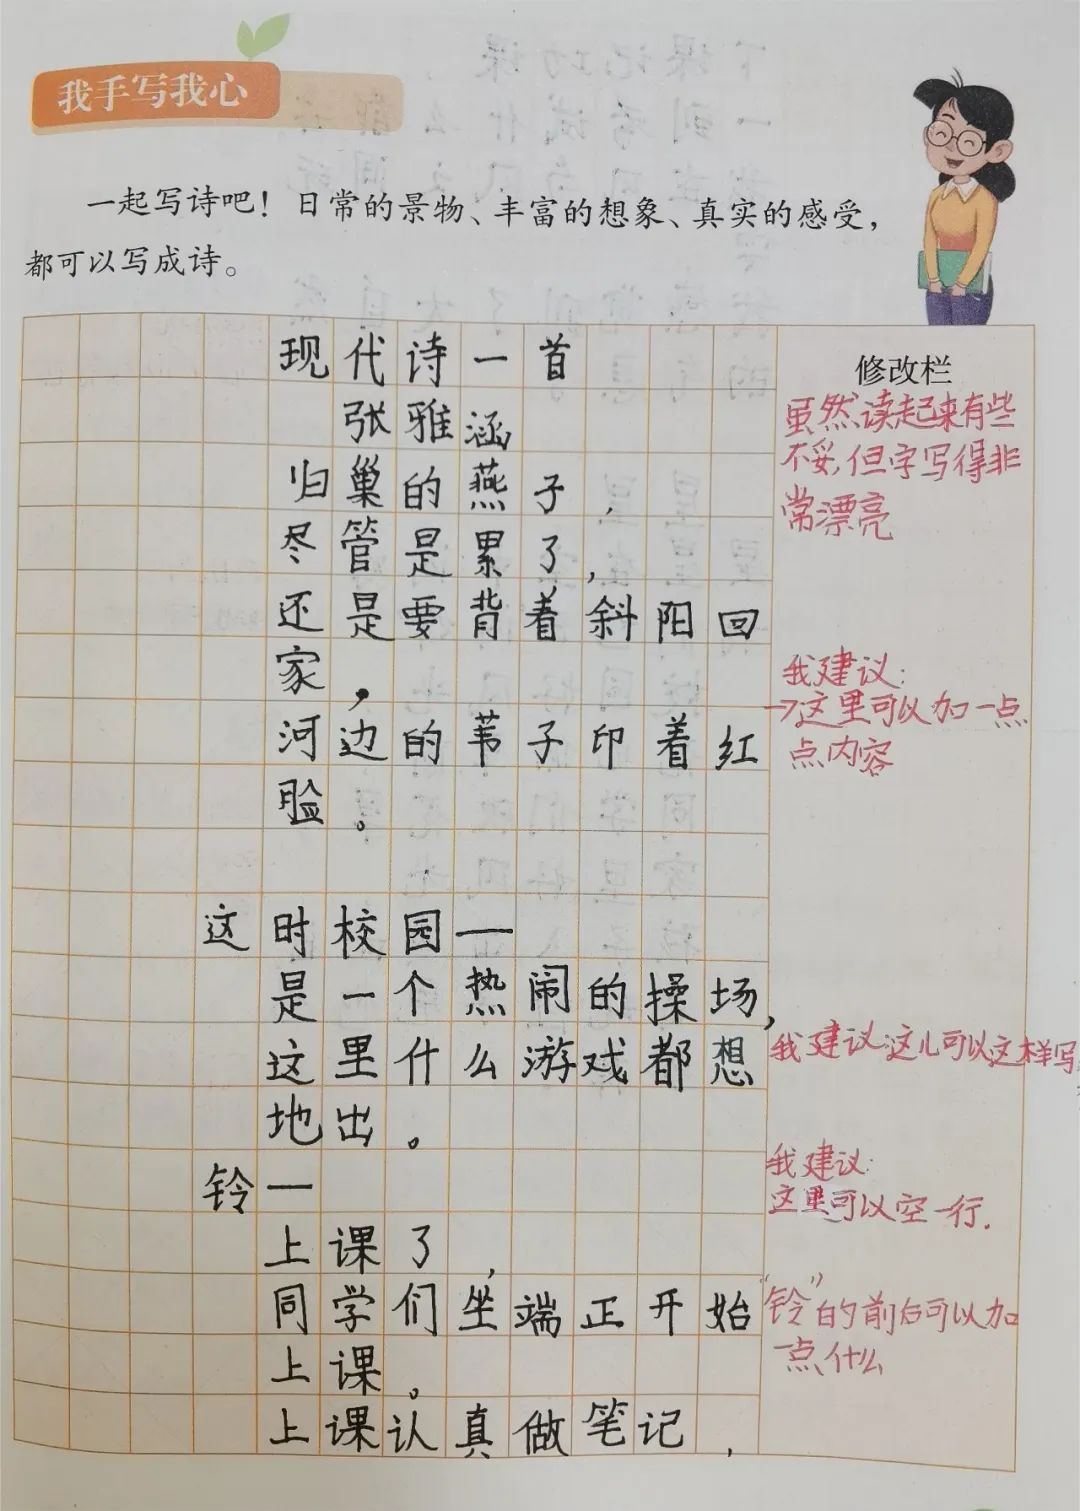 我手写我心
一起写诗吧！日常的景物、丰富的想象、真实的感受，
都可以写成诗。
现代诗一首
张雅涵
归巢的燕子，
尽管是累了，
还是要背着斜阳回
家，
河边的苇子印着红
脸。
这时校园——
是一个热闹的操场，
这里什么游戏都想
地出。
铃——
上课了，
同学们坐端正开始
上课。
上课认真做笔记，
修改栏
虽然读起来有些
不妥，但字写得非
常漂亮
我建议：
→这里可以加一点
点内容
我建议：这儿可以这样写
我建议：
这里可以空一行.
“铃”的前后可以加
一点什么